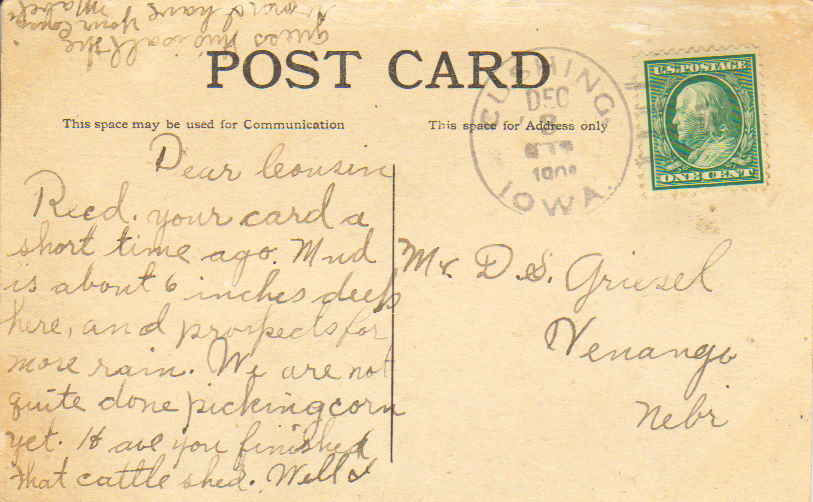 POST CARD
This space may be used for Communication
This space for Address only
CUSHING
DEC
8
IOWA.
U.S. POSTAGE
ONE CENT
Dear Cousin
Recd. your card a
short time ago. Mud
is about 6 inches deep
here, and prospects for
more rain. We are not
quite done picking corn
yet. Have you finished
that cattle shed. Well I
guess this is all the
I have your
Mabel
Mr. D.S. Griesel
Venango
Nebr